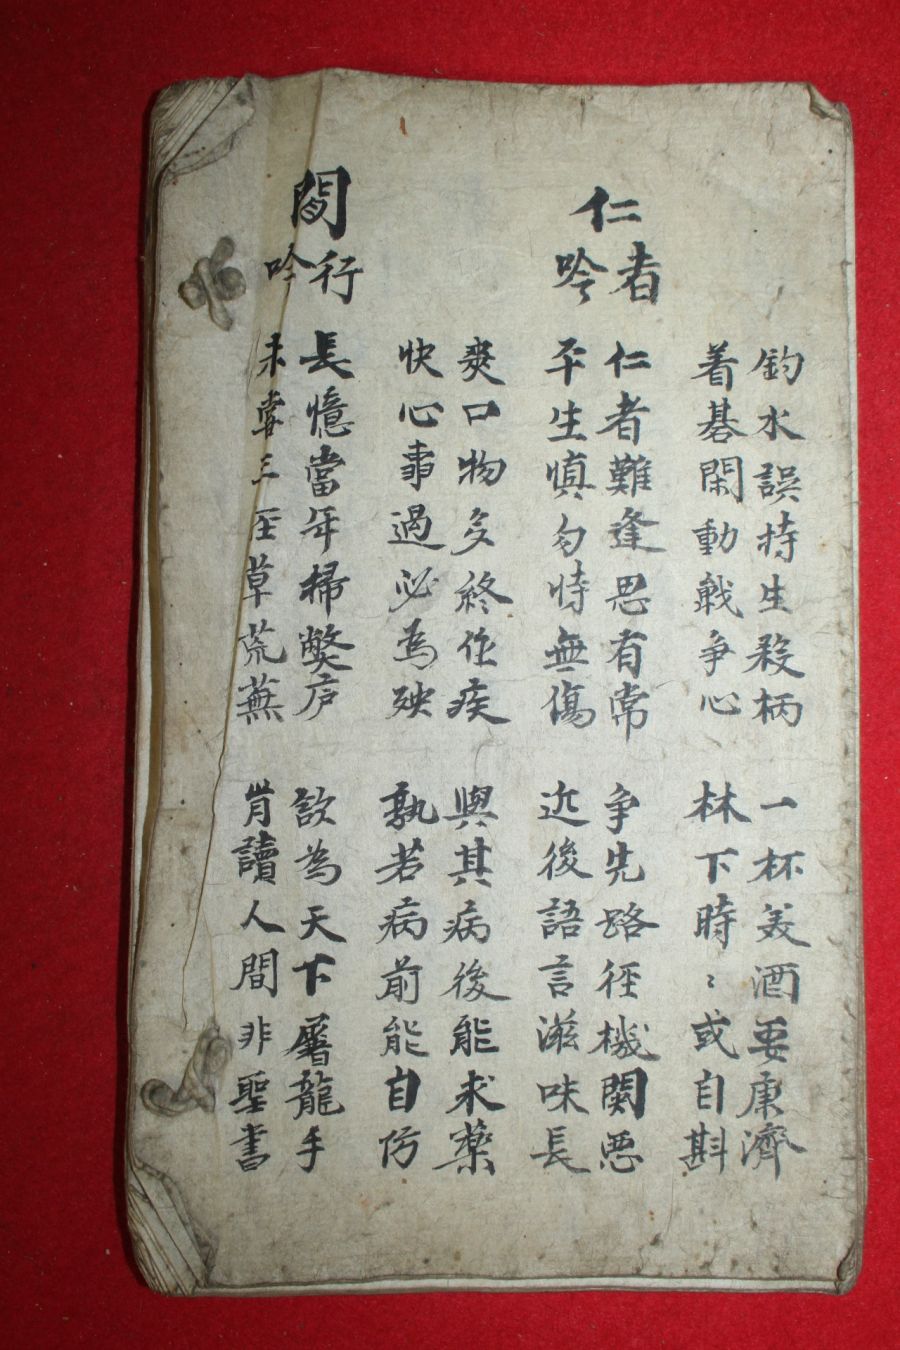 釣水誤持生殺柄 一杯美酒要康濟
着碁閑動戰爭心 林下時〻或自斟
仁者吟
仁者難逢思有常 爭先路徑機関惡
平生慎勿恃無傷 近後語言滋味長
爽口物多終作疾 與其病後能求藥
快心事過必為殃 孰若病前能自防
閒行吟
長憶當年掃弊庐 欲為天下屠龍手
未嘗三巠草荒蕪 肯讀人間非聖書